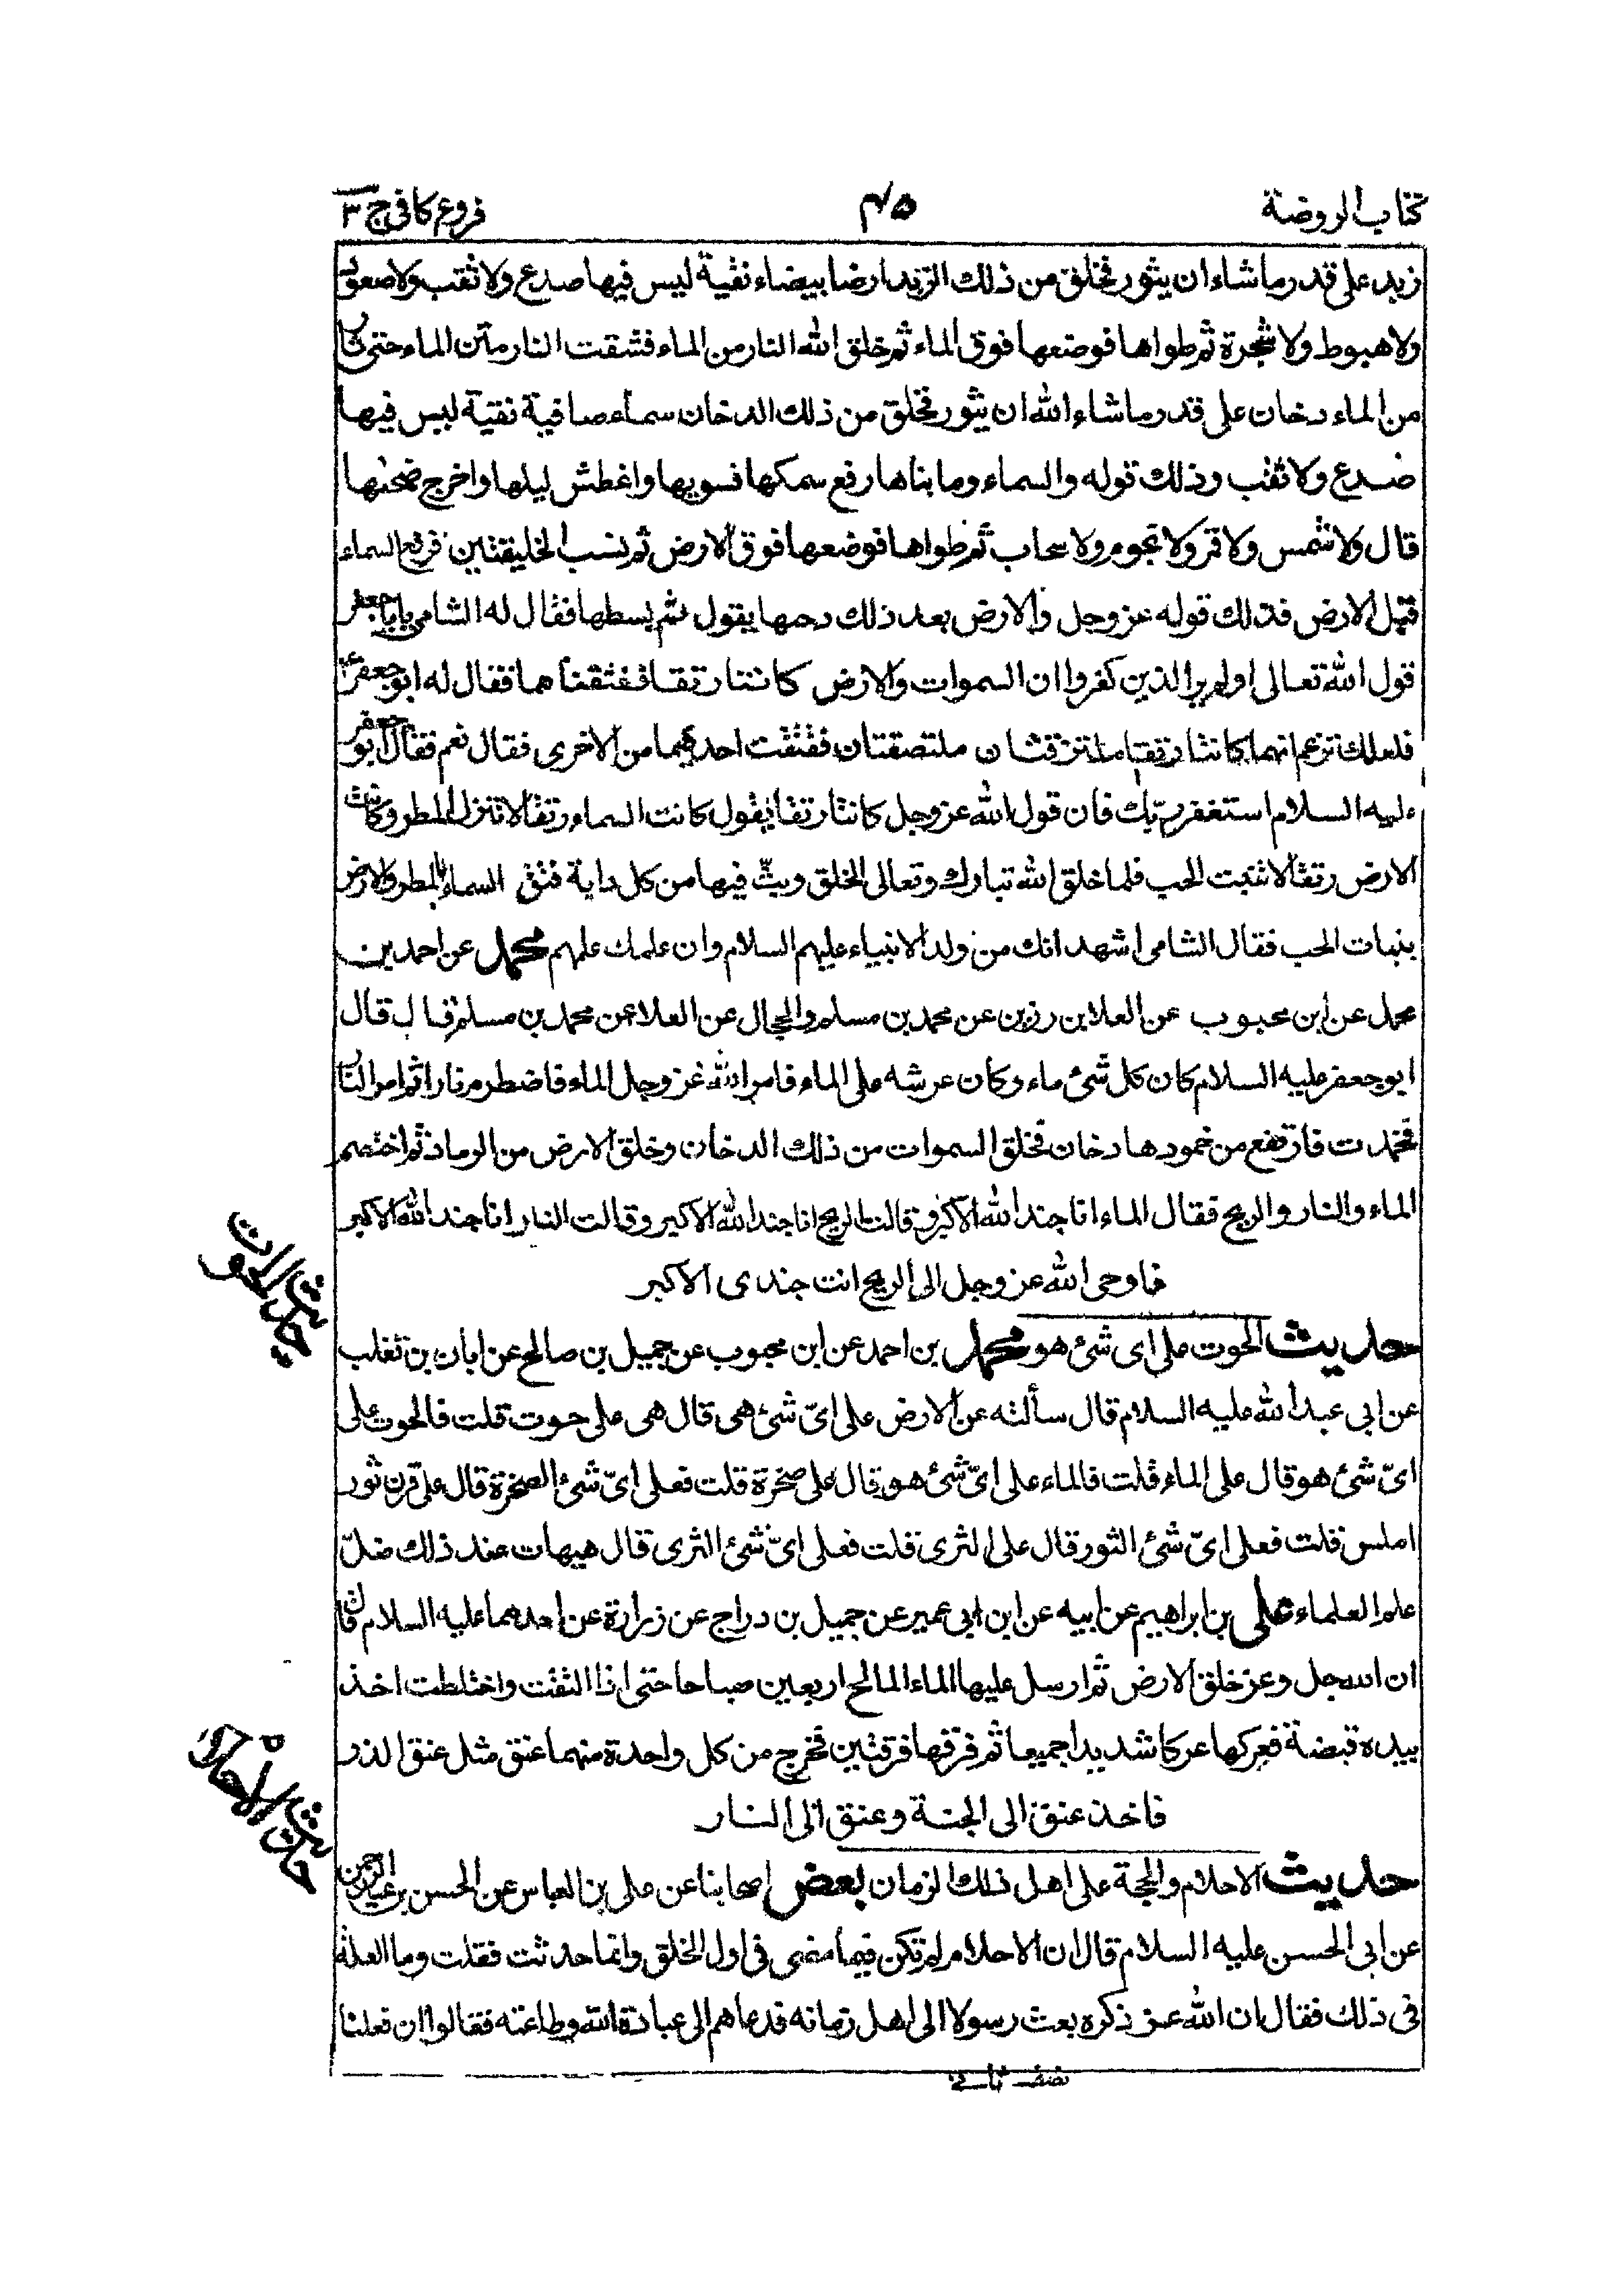 كتاب الروضة ٤٥ فروع كافى ج ٣
زبد على قدر ما شاء ان يثور فخلق من ذلك الزبد ارضا بيضاء نقية ليس فيها صدع ولا ثقب ولا صعود
ولا هبوط ولا شجرة ثم طواها فوضعها فوق الماء ثم خلق الله النار من الماء فشقت النار متن الماء حتى ثار
من الماء دخان على قدر ما شاء الله ان يثور فخلق من ذلك الدخان سماء صافية نقية ليس فيها
صدع ولا ثقب وذلك قوله والسماء وما بناها رفع سمكها فسويها واغطش ليلها واخرج ضحيها
قال ولا شمس ولا قمر ولا نجوم ولا سحاب ثم طواها فوضعها فوق الارض ثم نسب الخليقتين فرفع السماء
قبل الارض فذلك قوله عز وجل والارض بعد ذلك دحيها يقول ثم بسطها فقال له الشامى يابا جعفر
قول الله تعالى اولم ير الذين كفروا ان السموات والارض كانتا رتقا ففتقناهما فقال له ابو جعفر ع
فلعلك تزعم انهما كانتا رتقا ملتزقتان ملتصقتان ففتقت احديهما من الاخرى فقال نعم فقال ابو جعفر
عليه السلام استغفر ربّك فان قول الله عز وجل كانتا رتقا يقول كانت السماء رتقا لا تنزل المطر وكانت
الارض رتقا لا تنبت الحب فلما خلق الله تبارك وتعالى الخلق وبثّ فيها من كل دابة فتق السماء بالمطر والارض
بنبات الحب فقال الشامى اشهد انك من ولد الانبياء عليهم السلام وان علمك علمهم محمد عن احمد بن
محمد عن ابن محبوب عن العلا بن رزين عن محمد بن مسلم والحجال عن العلا عن محمد بن مسلم قال قال
ابو جعفر عليه السلام كان كل شئ ماء وكان عرشه على الماء فامر الله عز وجل الماء فاضطرم نارا ثم امر النار
فخمدت فارتفع من خمودها دخان فخلق السموات من ذلك الدخان وخلق الارض من الرماد ثم اختصم
الماء والنار والريح فقال الماء انا جند الله الاكبر وقالت الريح انا جند الله الاكبر وقالت النار انا جند الله الاكبر
فاوحى الله عز وجل الى الريح انت جندى الاكبر
حديث الحوت
حديث الحوت على اى شئ هو محمد بن احمد عن ابن محبوب عن جميل بن صالح عن ابان بن تغلب
عن ابى عبد الله عليه السلام قال سألته عن الارض على اىّ شئ هى قال هى على حوت قلت فالحوت على
اىّ شئ هو قال على الماء قلت فالماء على اىّ شئ هو قال على صخرة قلت فعلى اىّ شئ الصخرة قال على قرن ثور
املس قلت فعلى اىّ شئ الثور قال على الثرى قلت فعلى اىّ شئ الثرى قال هيهات عند ذلك ضلّ
علم العلماء على بن ابراهيم عن ابيه عن ابن ابى عمير عن جميل بن دراج عن زرارة عن احدهما عليه السلام قال
ان الله جل وعز خلق الارض ثم ارسل عليها الماء المالح اربعين صباحا حتى اذا التقت واختلطت اخذ
بيده قبضة فعركها عركا شديدا جميعا ثم فرقها فرقتين فخرج من كل واحدة منهما عنق مثل عنق الذر
فاخذ عنق الى الجنة وعنق الى النار
حديث الاحلام
حديث الاحلام والحجة على اهل ذلك الزمان بعض اصحابنا عن على بن العباس عن الحسن بن عبد الرحمن
عن ابى الحسن عليه السلام قال ان الاحلام لم تكن فيما مضى فى اول الخلق وانما حدثت فقلت وما العلة
فى ذلك فقال ان الله عز ذكره بعث رسولا الى اهل زمانه فدعاهم الى عبادة الله وطاعته فقالوا ان فعلنا
نصف ثانى